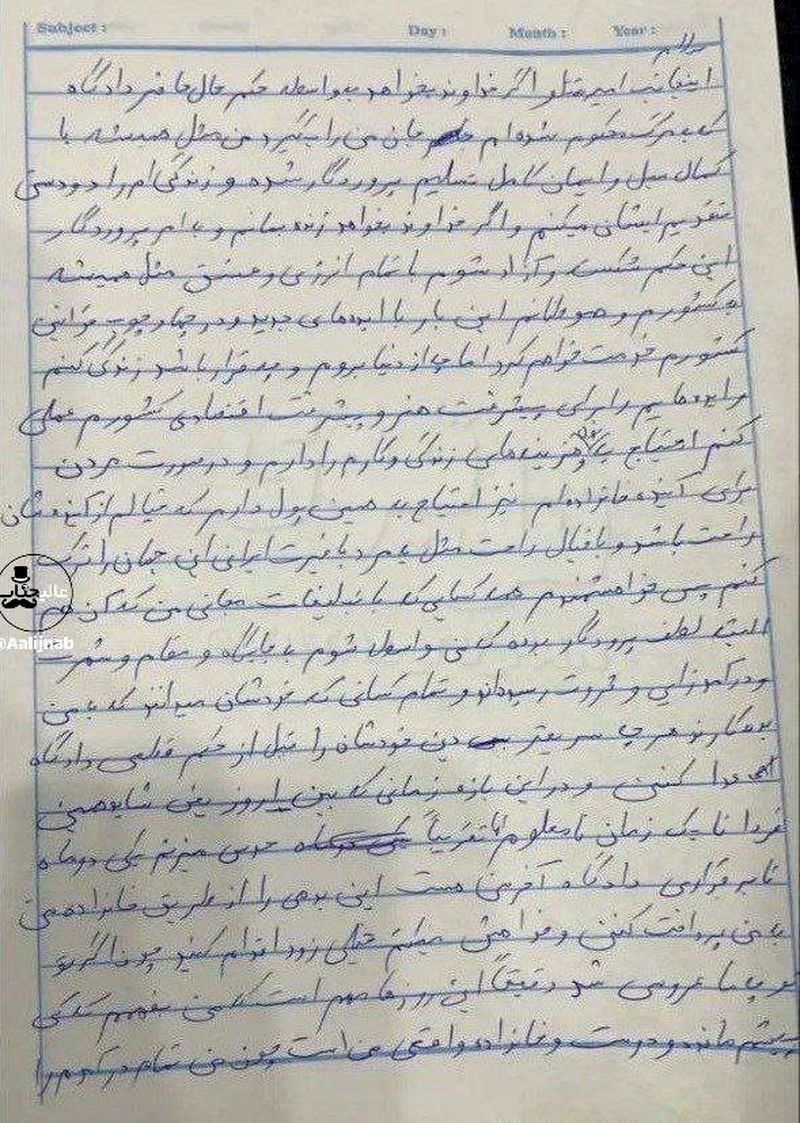 Subject :
Day :
Month :
Year :
سلام
اینجانب امیر مقصودلو اگر خداوند بخواهد به واسطه حکم حال حاضر دادگاه
که به مرگ محکوم شده‌ام جان من را بگیرد من مثل همیشه با
کمال میل و ایمان کامل تسلیم پروردگار شده و زندگی‌ام را دودستی
تقدیم ایشان میکنم و اگر خداوند بخواهد زنده بمانم و با امر پروردگار
این حکم شکست و آزاد شوم با تمام انرژی و عشق مثل همیشه
به کشورم و هموطنانم این بار با ایده‌های جدید و در چهارچوب قوانین
کشورم خدمت خواهم کرد اما چه از دنیا بروم و چه قرار باشد زندگی کنم
و ایده‌هایم را برای پیشرفت هنر و پیشرفت اقتصادی کشورم عملی
کنم احتیاج به هزینه‌های زندگی و کارم را دارم و در صورت مردن
برای آینده خانواده‌ام نیز احتیاج به همین پول دارم که خیالم از آینده‌شان
راحت باشد و با خیال راحت مثل یه مرد با غیرت ایرانی این جهان را ترک
کنم پس خواهشمندم همه کسانی که با تبلیغات مجانی من که آن هم
البته لطف پروردگار بوده که من واسطه شوم به جایگاه و مقام و شهرت
و درآمدزایی و ثروت رسیدند و تمام کسانی که خودشان میدانند که به من
بدهکارند هر چه سریعتر دین خودشان را قبل از حکم قطعی دادگاه
ادا کنند و در این بازه زمانی که بین امروز یعنی شاید همین
فردا تا یک زمان نامعلوم تقریباً حدس میزنم یکی دو ماه
تا برقراری دادگاه آخر من هست این بدهی را از طریق خانواده من
به من پرداخت کنند و خواهش میکنم خیلی زود اقدام کنید چون اگر
عروسی شد دقیقاً این روزها مهم است که من بفهمم که کی
پیشم مانده و درست و خانواده واقعی من است چون من تمام درآمدم را
عالیجناب
@Aalijnab